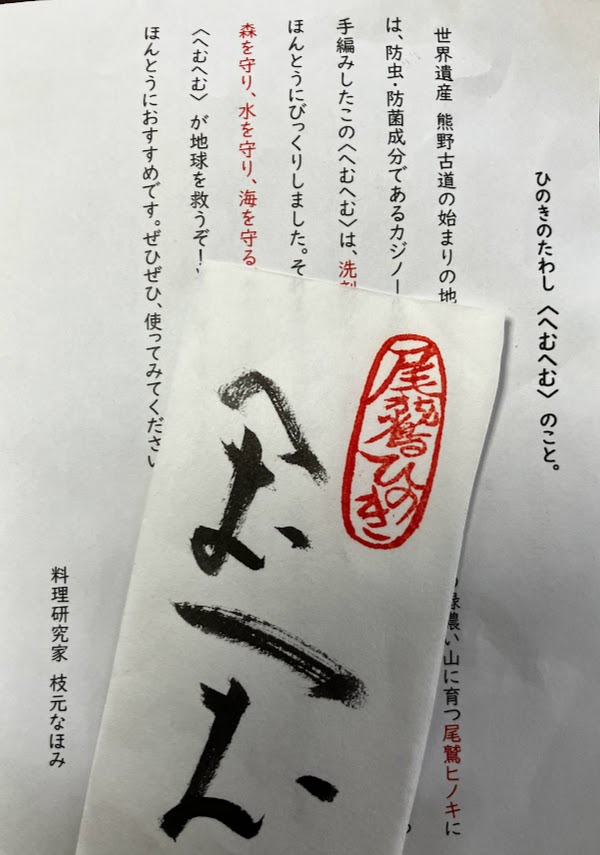 ひのきのたわし〈へむへむ〉のこと。
世界遺産 熊野古道の始まりの地
緑濃い山に育つ尾鷲ヒノキに
は、防虫・防菌成分であるカジノー
手編みしたこの〈へむへむ〉は、洗剤
ほんとうにびっくりしました。そ
森を守り、水を守り、海を守る
〈へむへむ〉が地球を救うぞ!
ほんとうにおすすめです。ぜひぜひ、使ってみてください
料理研究家 枝元なほみ
尾鷲ひのき
へむへむ